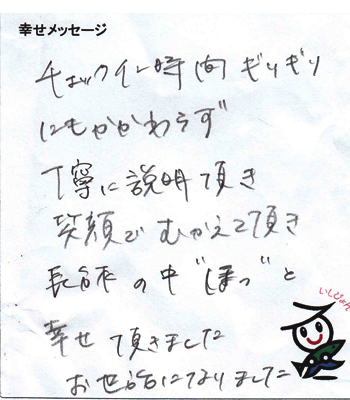 幸せメッセージ
チェックイン時間ぎりぎり
にもかかわらず
丁寧に説明頂き
笑顔でむかえて頂き
の中"ほっ"と
幸せ頂きました
お世話になりました
いしぴょん